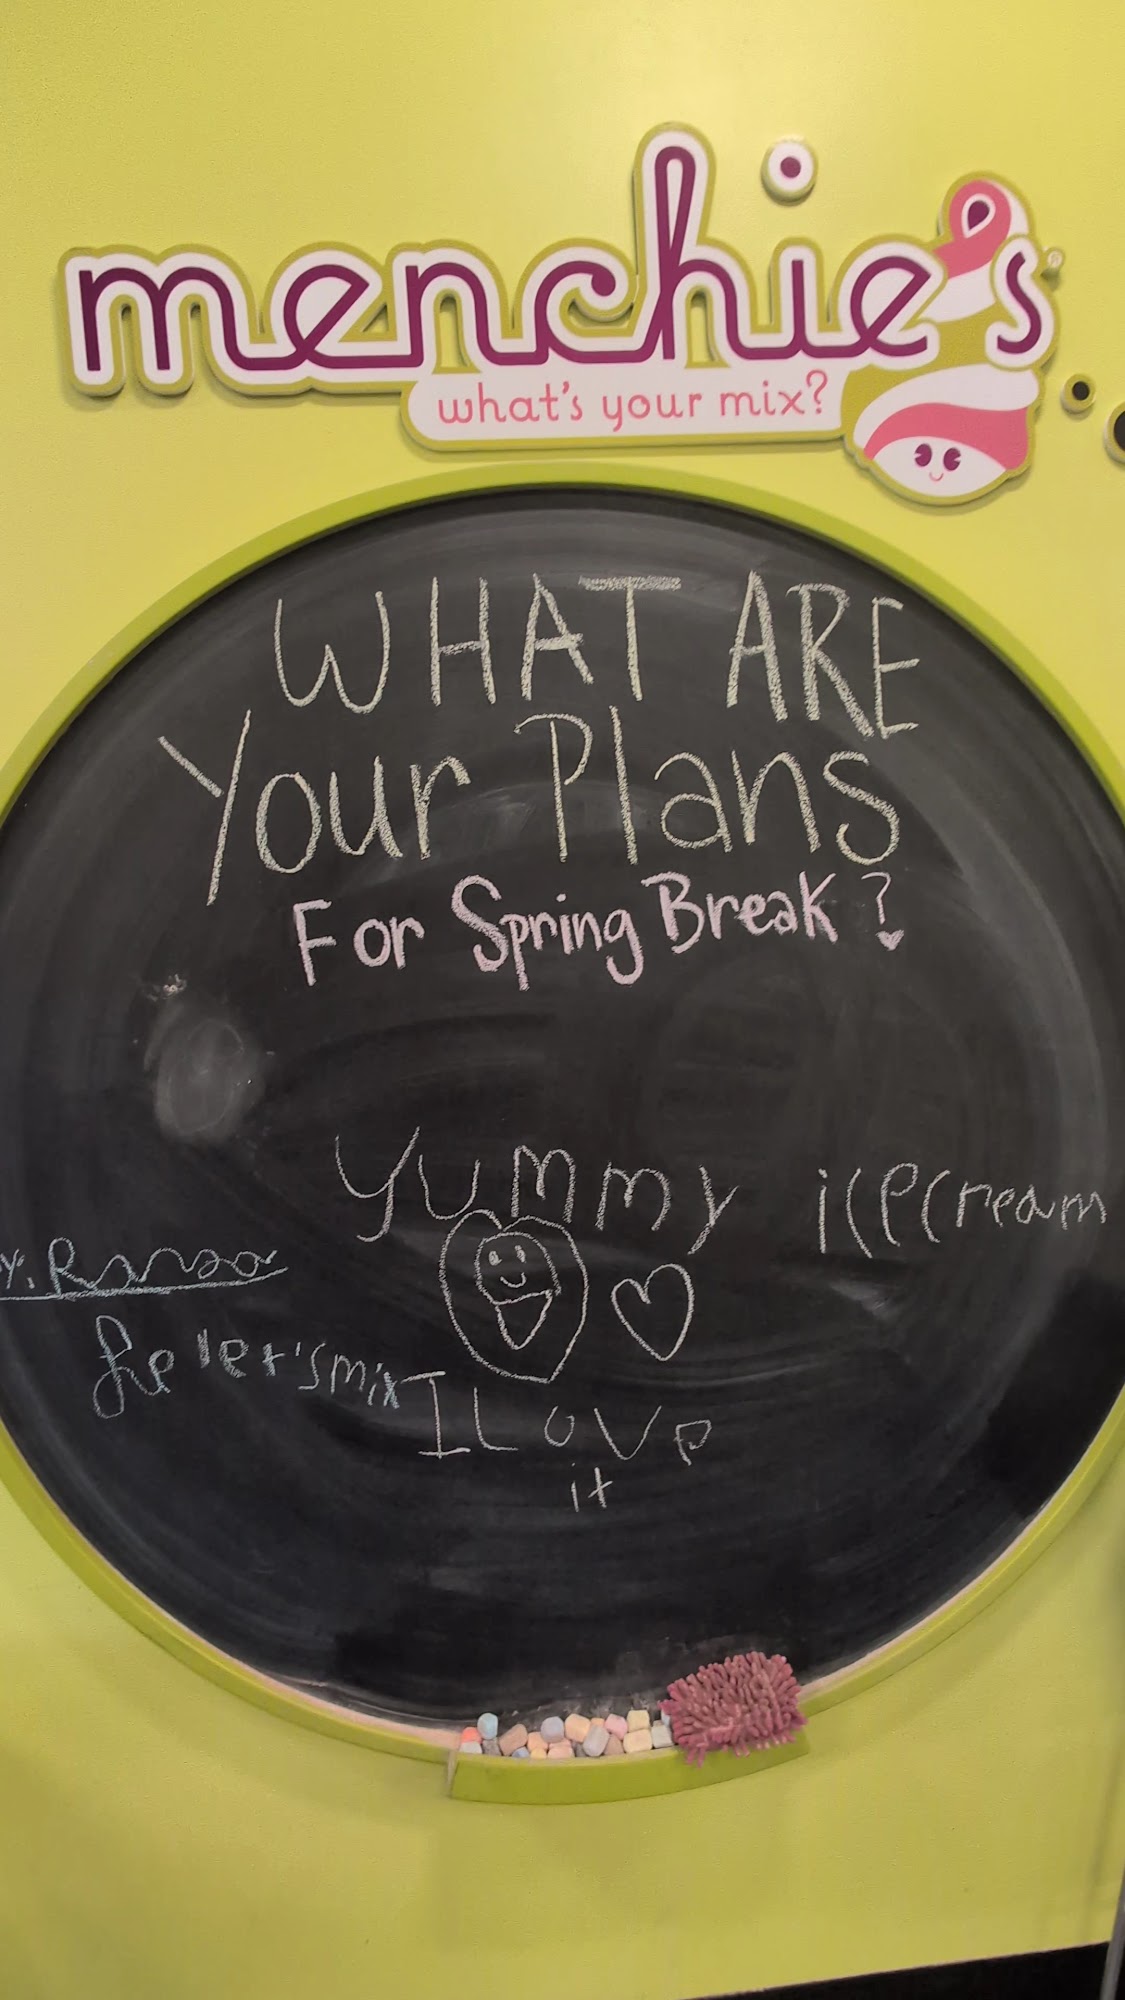 menchie's®
what's your mix?
WHAT ARE
Your Plans
For Spring Break?
Yummy icecream
mix
I Love
it